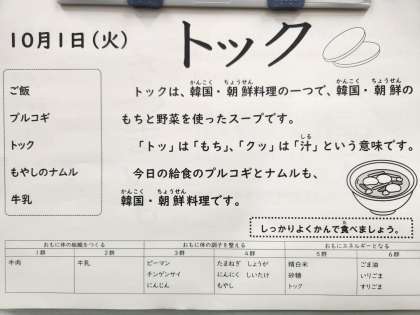 10月1日(火)
トック
ご飯
プルコギ
トック
もやしのナムル
牛乳
かんこく ちょうせん かんこく ちょうせん
トックは、韓国・朝鮮料理の一つで、韓国・朝鮮の
もちと野菜を使ったスープです。
しる
「トッ」は「もち」、「クッ」は「汁」という意味です。
今日の給食のプルコギとナムルも、
かんこく ちょうせん
韓国・朝鮮料理です。
しっかりよくかんで食べましょう。
おもに体の組織をつくる おもに体の調子を整える おもにエネルギーとなる
1群 2群 3群 4群 5群 6群
牛肉 牛乳 ピーマン たまねぎ しょうが 精白米 ごま油
チンゲンサイ にんにく しいたけ 砂糖 いりごま
にんじん もやし トック すりごま